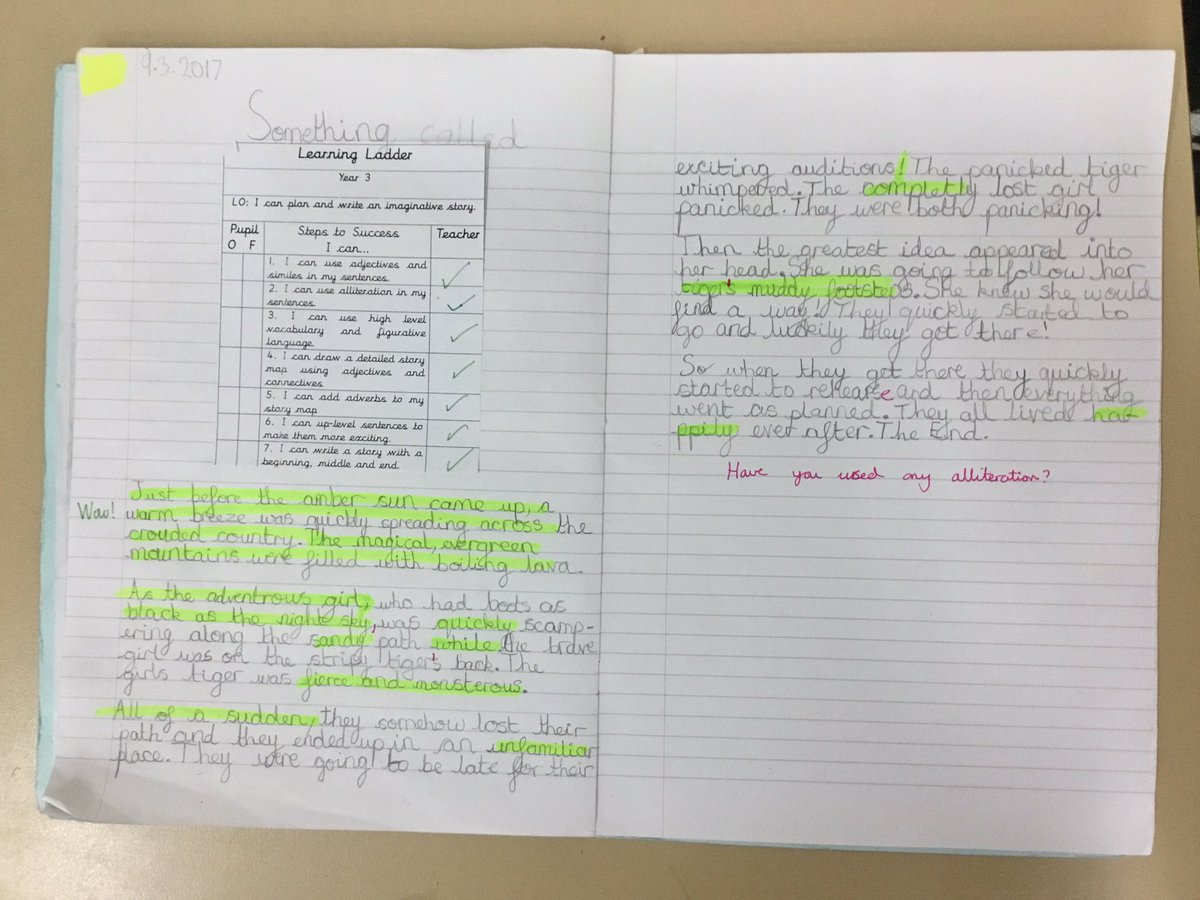 9.3.2017
Something called
Learning Ladder
Year 3
LO: I can plan and write an imaginative story.
Pupil
O F
Steps to Success
I can...
Teacher
1. I can use adjectives and
similes in my sentences.
2. I can use alliteration in my
sentences.
3. I can use high level
vocabulary and figurative
language.
4. I can draw a detailed story
map using adjectives and
connectives
5. I can add adverbs to my
story map
6. I can up-level sentences to
make them more exciting.
7. I can write a story with a
beginning, middle and end.
Just before the amber sun came up, a
Wow! warm breeze was quickly spreading across the
crouded country. The magical, evergreen
mountains were filled with boiling lava.
As the adventrous girl, who had boots as
black as the night sky, was quickly scamp-
ering along the sandy path while the brave
girl was on the stripy tiger's back. The
girls tiger was fierce and monsterous.
All of a sudden, they somehow lost their
path and they ended up in an unfamiliar
place. They were going to be late for their
exciting auditions! The panicked tiger
whimpered. The completly lost girl
panicked. They were both panicking!
Then the greatest idea appeared into
her head. She was going to follow her
tiger's muddy footsteps. She knew she would
find a way! They quickly started to
go and luckily they got there!
So when they got there they quickly
started to rehearse and then everything
went as planned. They all lived hap-
ppily ever after. The End.
Have you used any alliteration?